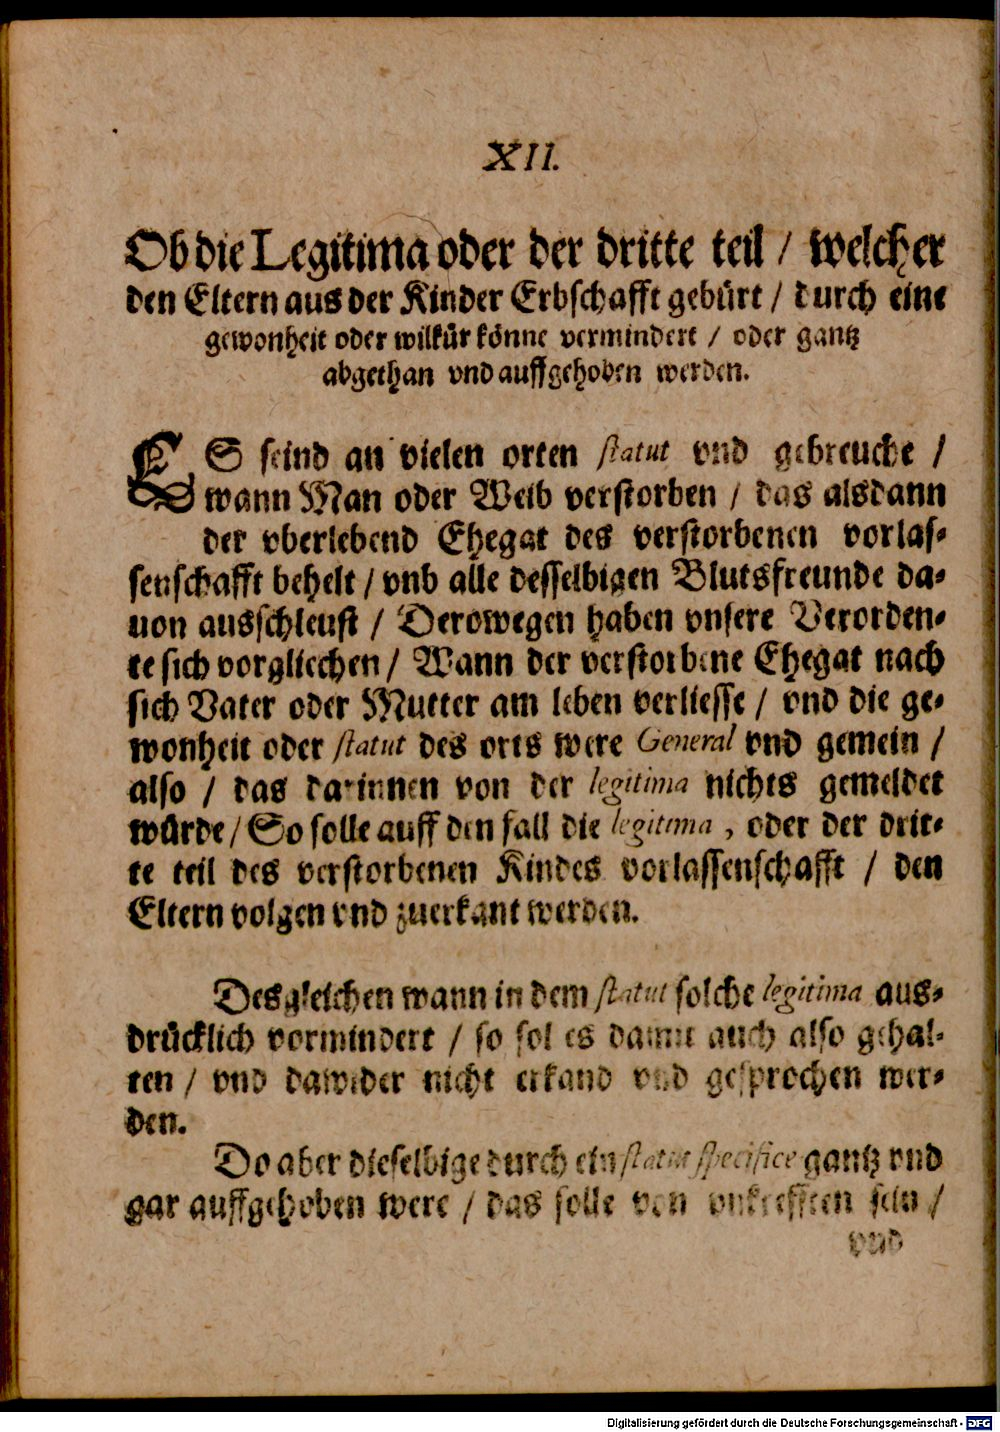 XII.
Ob die Legitima oder der dritte teil / welcher
den Eltern aus der Kinder Erbschafft gebürt / durch eine
gewonheit oder wilkür könne vermindert / oder gantz
abgethan vnd auffgehoben werden.
ES seind an vielen orten statut vnd gebreuche /
wann Man oder Weib verstorben / das alsdann
der vberlebend Ehegat des verstorbenen vorlas-
senschafft behelt / vnb alle desselbigen Blutsfreunde da-
uon ausschleust / Derowegen haben vnsere Verorden-
te sich vorgliechen / Wann der verstorbene Ehegat nach
sich Vater oder Mutter am leben verliesse / vnd die ge-
wonheit oder statut des orts were General vnd gemein /
also / das darinnen von der legitima nichts gemeldet
würde / So solle auff den fall die legitima , oder der drit-
te teil des verstorbenen Kindes vorlassenschafft / den
Eltern volgen vnd zuerkant werden.
Desgleichen wann in dem statut solche legitima aus-
drücklich vormindert / so sol es damit auch also gehal-
ten / vnd dawider nicht erkand vnd gesprochen wer-
den.
Do aber dieselbige durch ein statut specifice gantz vnd
gar auffgehoben were / das solle von vnkrefften sein /
vnd
Digitalisierung gefördert durch die Deutsche Forschungsgemeinschaft - DFG